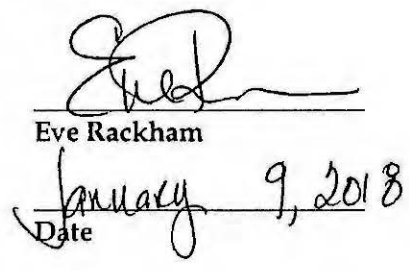 Eve Rackham
January 9, 2018
Date